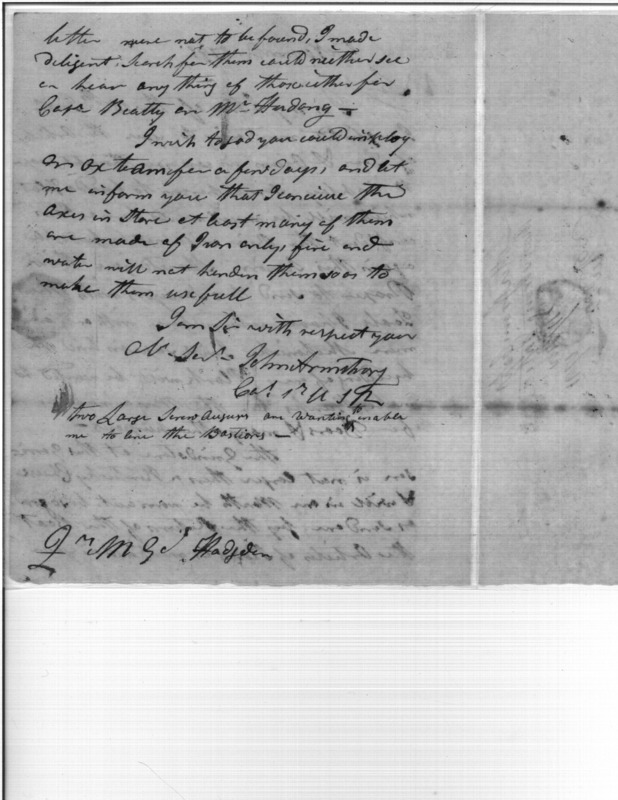 letter were not to be found, I made
diligent Search for them could neither see
or hear any thing of those either for
Capn Beatty or Mr
I wish to god you could
an ox team for a few days, and let
me inform you that I conceive the
axes in Store at least many of them
are made of Iron only, fire and
water will not harden them so as to
make them usefull
I am Sir with respect your
Ob Servt John Armstrong
Cat 1st U S R
two Large Screw Augurs are wanting to inable
me to line the Bastions —
Qr M Gl Hodgden